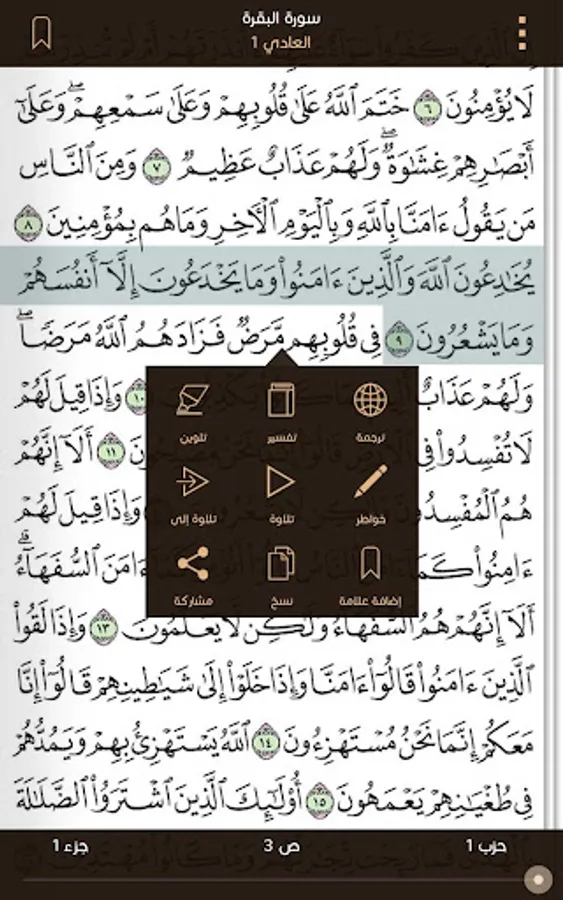 سورة البقرة
العادي 1
لَا يُؤْمِنُونَ ٦ خَتَمَ ٱللَّهُ عَلَىٰ قُلُوبِهِمْ وَعَلَىٰ سَمْعِهِمْۖ وَعَلَىٰٓ
أَبْصَٰرِهِمْ غِشَٰوَةٌۖ وَلَهُمْ عَذَابٌ عَظِيمٌ ٧ وَمِنَ ٱلنَّاسِ
مَن يَقُولُ ءَامَنَّا بِٱللَّهِ وَبِٱلْيَوْمِ ٱلْأَخِرِ وَمَا هُم بِمُؤْمِنِينَ ٨
يُخَٰدِعُونَ ٱللَّهَ وَٱلَّذِينَ ءَامَنُوا۟ وَمَا يَخْدَعُونَ إِلَّآ أَنفُسَهُمْ
وَمَا يَشْعُرُونَ ٩ فِى قُلُوبِهِم مَّرَضٌ فَزَادَهُمُ ٱللَّهُ مَرَضًاۖ
وَلَهُمْ عَذَابٌ ١٠ وَإِذَا قِيلَ لَهُمْ
لَا تُفْسِدُوا۟ فِى ١١ أَلَآ إِنَّهُمْ
هُمُ ٱلْمُفْسِدُونَ وَإِذَا قِيلَ لَهُمْ
ءَامِنُوا۟ كَمَآ ءَامَنَ ٱلسُّفَهَآءُۗ
أَلَآ إِنَّهُمْ هُمُ ٱلسُّفَهَآءُ وَلَٰكِن لَّا يَعْلَمُونَ ١٣ وَإِذَا لَقُوا۟
ٱلَّذِينَ ءَامَنُوا۟ قَالُوٓا۟ ءَامَنَّا وَإِذَا خَلَوْا۟ إِلَىٰ شَيَٰطِينِهِمْ قَالُوٓا۟ إِنَّا
مَعَكُمْ إِنَّمَا نَحْنُ مُسْتَهْزِءُونَ ١٤ ٱللَّهُ يَسْتَهْزِئُ بِهِمْ وَيَمُدُّهُمْ
فِى طُغْيَٰنِهِمْ يَعْمَهُونَ ١٥ أُو۟لَٰٓئِكَ ٱلَّذِينَ ٱشْتَرَوُا۟ ٱلضَّلَٰلَةَ
ترجمة تفسير تلوين
خواطر تلاوة تلاوة إلى
إضافة علامة نسخ مشاركة
حزب 1 ص 3 جزء 1